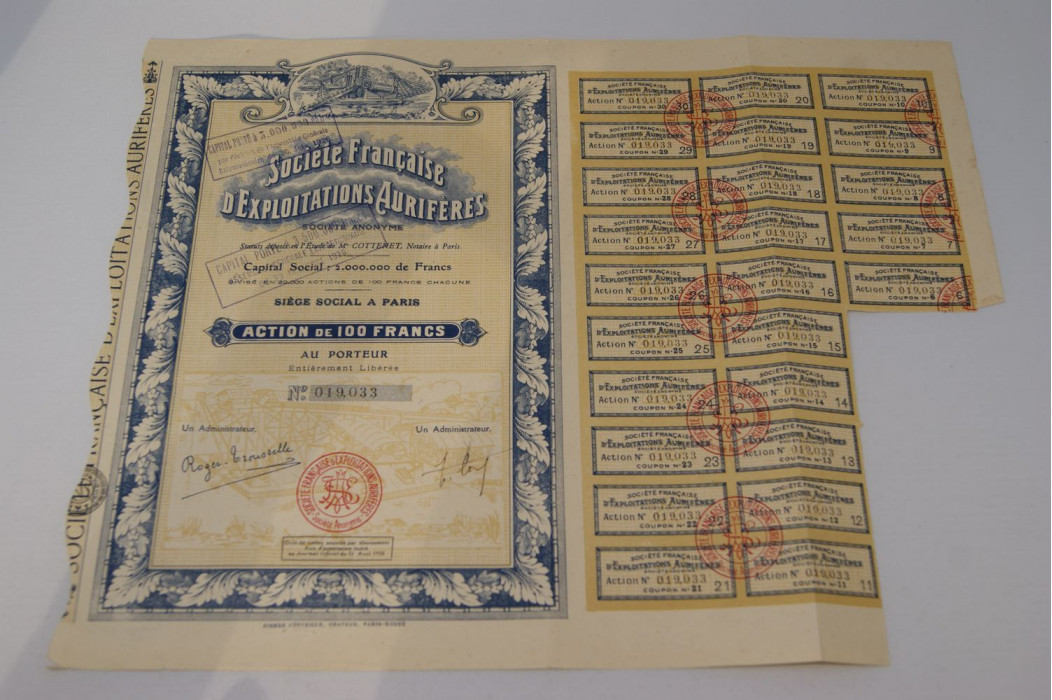 SOCIÉTÉ FRANÇAISE D'EXPLOITATIONS AURIFÈRES
CAPITAL PORTÉ À 3.000.000
Société Française
d'Exploitations Aurifères
SOCIÉTÉ ANONYME
Statuts déposés en l'Étude de Me COTTERET, Notaire à Paris
CAPITAL PORTÉ
Capital Social : 2.000.000 de Francs
DIVISÉ EN 20.000 ACTIONS DE 100 FRANCS CHACUNE
SIÈGE SOCIAL A PARIS
ACTION DE 100 FRANCS
AU PORTEUR
Entièrement Libérée
No 019,033
Un Administrateur.
Un Administrateur.
Roger Trousselle
SOCIÉTÉ FRANÇAISE D'EXPLOITATIONS AURIFÈRES
Société Anonyme
SOCIÉTÉ FRANÇAISE
d'Exploitations Aurifères
SOCIÉTÉ ANONYME
Action No 019,033
COUPON No 30
30
SOCIÉTÉ FRANÇAISE
d'Exploitations Aurifères
SOCIÉTÉ ANONYME
Action No 019,033
COUPON No 20
20
SOCIÉTÉ FRANÇAISE
d'Exploitations Aurifères
SOCIÉTÉ ANONYME
Action No 019,033
COUPON No 10
10
SOCIÉTÉ FRANÇAISE
d'Exploitations Aurifères
SOCIÉTÉ ANONYME
Action No 019,033
COUPON No 29
29
SOCIÉTÉ FRANÇAISE
d'Exploitations Aurifères
SOCIÉTÉ ANONYME
Action No 019,033
COUPON No 19
19
SOCIÉTÉ FRANÇAISE
d'Exploitations Aurifères
SOCIÉTÉ ANONYME
Action No 019,033
COUPON No 9
9
SOCIÉTÉ FRANÇAISE
d'Exploitations Aurifères
SOCIÉTÉ ANONYME
Action No 019,033
COUPON No 28
28
SOCIÉTÉ FRANÇAISE
d'Exploitations Aurifères
SOCIÉTÉ ANONYME
Action No 019,033
COUPON No 18
18
SOCIÉTÉ FRANÇAISE
d'Exploitations Aurifères
SOCIÉTÉ ANONYME
Action No 019,033
COUPON No 8
8
SOCIÉTÉ FRANÇAISE
d'Exploitations Aurifères
SOCIÉTÉ ANONYME
Action No 019,033
COUPON No 27
27
SOCIÉTÉ FRANÇAISE
d'Exploitations Aurifères
SOCIÉTÉ ANONYME
Action No 019,033
COUPON No 17
17
SOCIÉTÉ FRANÇAISE
d'Exploitations Aurifères
SOCIÉTÉ ANONYME
Action No 019,033
COUPON No 7
7
SOCIÉTÉ FRANÇAISE
d'Exploitations Aurifères
SOCIÉTÉ ANONYME
Action No 019,033
COUPON No 26
26
SOCIÉTÉ FRANÇAISE
d'Exploitations Aurifères
SOCIÉTÉ ANONYME
Action No 019,033
COUPON No 16
16
SOCIÉTÉ FRANÇAISE
d'Exploitations Aurifères
SOCIÉTÉ ANONYME
Action No 019,033
COUPON No 6
6
SOCIÉTÉ FRANÇAISE
d'Exploitations Aurifères
SOCIÉTÉ ANONYME
Action No 019,033
COUPON No 25
25
SOCIÉTÉ FRANÇAISE
d'Exploitations Aurifères
SOCIÉTÉ ANONYME
Action No 019,033
COUPON No 15
15
SOCIÉTÉ FRANÇAISE
d'Exploitations Aurifères
SOCIÉTÉ ANONYME
Action No 019,033
COUPON No 24
24
SOCIÉTÉ FRANÇAISE
d'Exploitations Aurifères
SOCIÉTÉ ANONYME
Action No 019,033
COUPON No 14
14
SOCIÉTÉ FRANÇAISE
d'Exploitations Aurifères
SOCIÉTÉ ANONYME
Action No 019,033
COUPON No 23
23
SOCIÉTÉ FRANÇAISE
d'Exploitations Aurifères
SOCIÉTÉ ANONYME
Action No 019,033
COUPON No 13
13
SOCIÉTÉ FRANÇAISE
d'Exploitations Aurifères
SOCIÉTÉ ANONYME
Action No 019,033
COUPON No 22
22
SOCIÉTÉ FRANÇAISE
d'Exploitations Aurifères
SOCIÉTÉ ANONYME
Action No 019,033
COUPON No 12
12
SOCIÉTÉ FRANÇAISE
d'Exploitations Aurifères
SOCIÉTÉ ANONYME
Action No 019,033
COUPON No 21
21
SOCIÉTÉ FRANÇAISE
d'Exploitations Aurifères
SOCIÉTÉ ANONYME
Action No 019,033
COUPON No 11
11